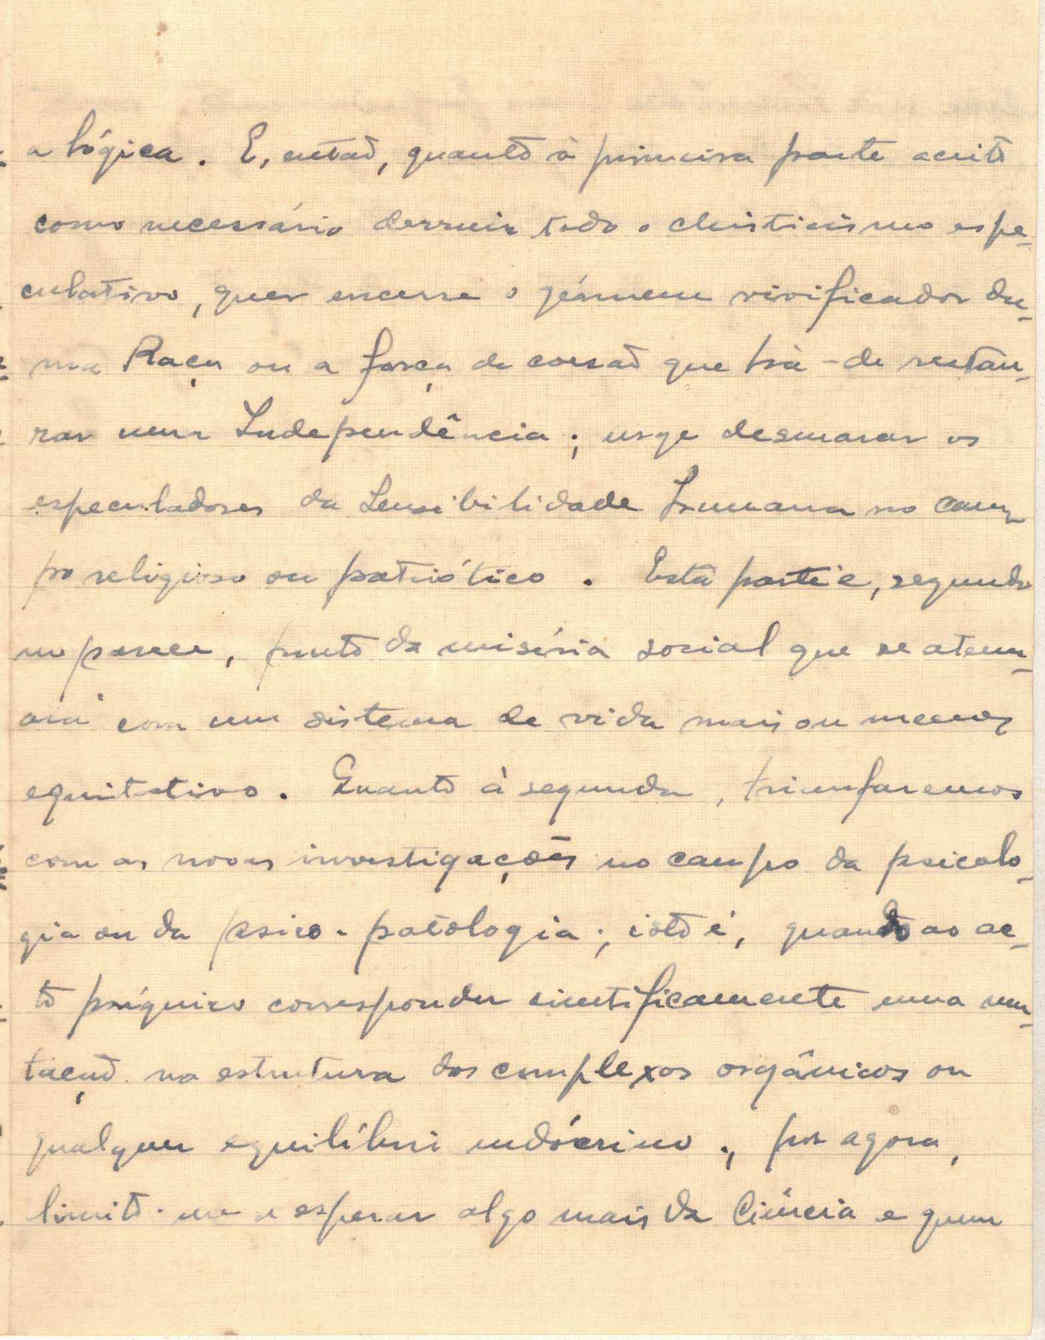 a lógica. E, então, quanto à primeira parte aceito
como necessário derruir todo o christicismo espe-
culativo, quer encerre o gérmem vivificador du-
ma Raça ou a força de coesão que há-de restau-
rar uma Independência; urge desmarar os
especuladores da Sensibilidade humana no cam-
po religioso ou patriótico. Esta parte é, segundo
me parece, fruto da miséria social que se atenu-
ará com um sistema de vida mais ou menos
equitativo. Quanto à segunda, triunfaremos
com as novas investigações no campo da psicolo-
gia ou da psico-patologia; isto é, quando ao ac-
to psíquico corresponder cientificamente uma mu-
tação na estrutura dos complexos orgânicos ou
qualquer equilíbri endócrino; por agora,
limito-me a esperar algo mais da Ciência e quem